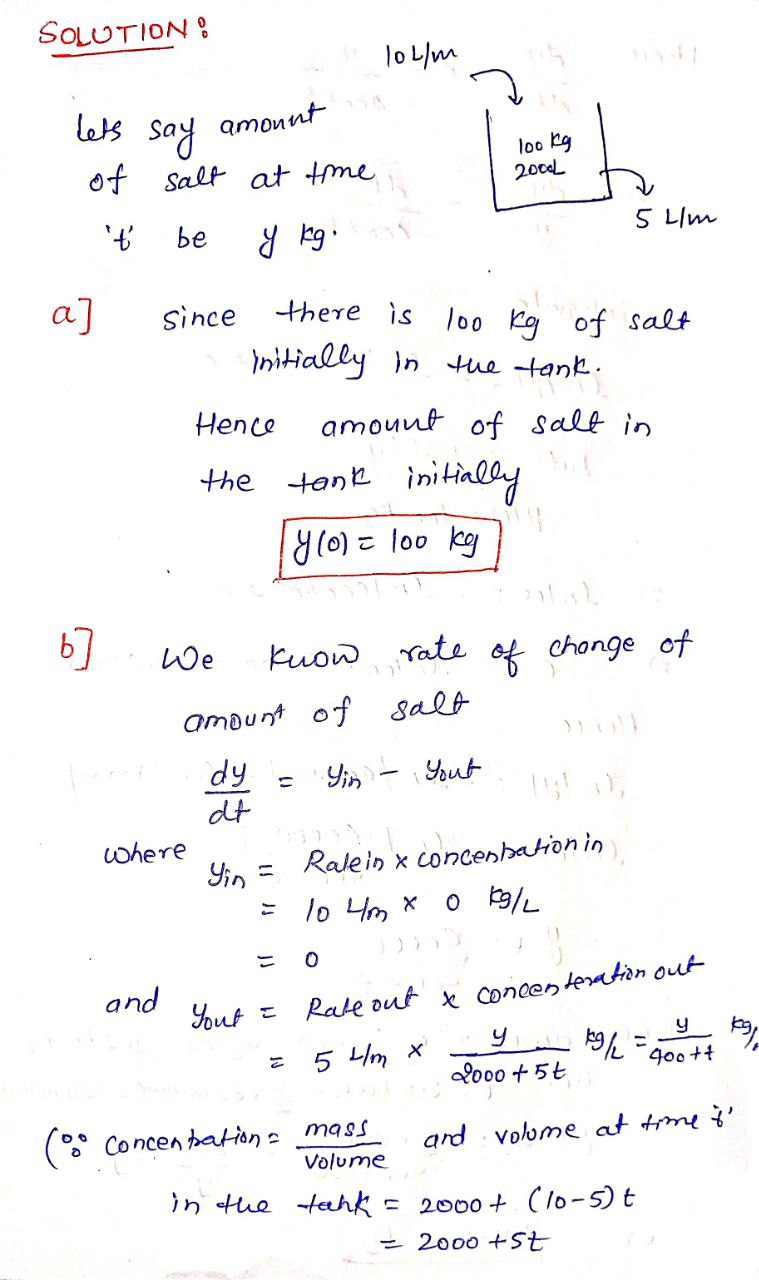 SOLUTION:
10 L/m
lets say amount
of salt at time
't' be y kg.
100 kg
2000L
5 L/m
a] since there is 100 kg of salt
initially in the tank.
Hence amount of salt in
the tank initially
y(0) = 100 kg
b] We know rate of change of
amount of salt
dy/dt = yin - yout
where yin = Rate in x concentration in
= 10 L/m x 0 kg/L
= 0
and yout = Rate out x concenteration out
= 5 L/m x y/(2000 + 5t) kg/L = y/(400+t) kg/
(∵ concentration = mass/volume and volume at time 't'
in the tank = 2000 + (10-5)t
= 2000 + 5t